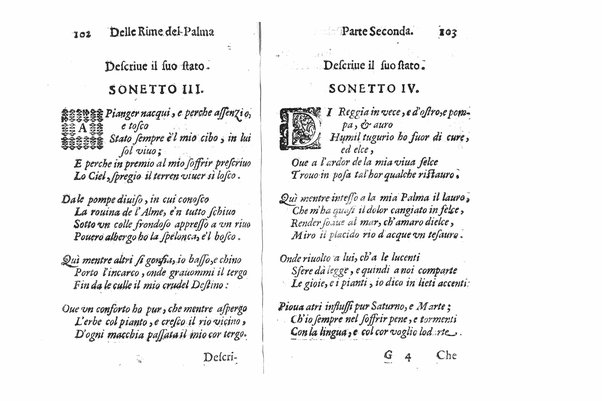 102 Delle Rime del Palma
Descriue il suo stato.
SONETTO III.
A Pianger nacqui, e perche assenzio,
e tosco
Stato sempre è'l mio cibo, in lui
sol viuo;
E perche in premio al mio soffrir prescriuo
Lo Ciel, spregio il terren viuer sì losco.
Da le pompe diuiso, in cui conosco
La rouina de l'Alme, e'n tutto schiuo
Sotto vn colle frondoso appresso à vn riuo
Pouero albergo hò la spelonca, e'l bosco.
Quì mentre altri si gonfia, io basso, e chino
Porto l'incarco, onde grauommi il tergo
Fin da le culle il mio crudel Destino:
Oue vn conforto hò pur, che mentre aspergo
L'erbe col pianto, e cresco il rio vicino,
D'ogni macchia passata il mio cor tergo.
Descri-
Parte Seconda. 103
Descriue il suo stato.
SONETTO IV.
DI Reggia in vece, e d'ostro, e pom-
pa, & auro
Humil tugurio hò fuor di cure,
ed elce,
Oue a l'ardor de la mia viua selce
Trouo in posa tal'hor qualche ristauro.
Quì mentre intesso a la mia Palma il lauro,
Che m'hà quasi il dolor cangiato in selce,
Render soaue al mar, ch'amaro dielce,
Miro il placido rio d'acque vn tesauro.
Onde riuolto a lui, ch'a le lucenti
Sfere dà legge, e quindi a noi comparte
Le gioie, e i pianti, io dico in lieti accenti:
Piova atri influssi pur Saturno, e Marte;
Ch'io sempre nel soffrir pene, e tormenti
Con la lingua, e col cor voglio lodarte.
G 4 Che